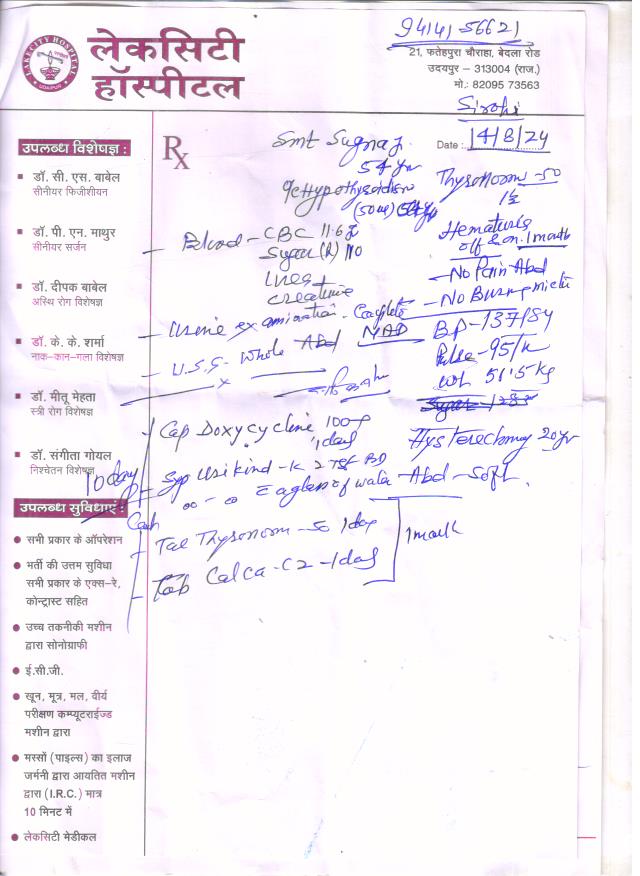 LAKECITY HOSPITAL
UDAIPUR
लेकसिटी
हॉस्पीटल
94141-56621
21, फतेहपुरा चौराहा, बेदला रोड
उदयपुर - 313004 (राज.)
मो.: 82095 73563
Sirohi
Rx
Smt Sugna
Date : 14/8/24
54 yr
Hypothyroidism
(50 ug)
Thyronorm - 50
1½
Hematuria
off & on. 1 month
- No Pain Abd
- No Burning
BP - 137/84
Pulse - 95/
wt 51.5 kg
Hysterectomy 20 yr
Abd - Soft
- Blood - CBC 11.6
Sugar (R) 110
Urea
Creatinine
- Urine examination. Complete
- U.S.G. Whole Abd NAD
10 day
- Cap Doxycycline 100
1 day
- Syp Urikind-K 2 TSF BD
glass of water
- Tab Thyronorm - 50 1 day
- Tab Calca-C2 - 1 day
1 month
उपलब्ध विशेषज्ञ :
डॉ. सी. एस. बाबेल
सीनीयर फिजीशीयन
डॉ. पी. एन. माथुर
सीनीयर सर्जन
डॉ. दीपक बाबेल
अस्थि रोग विशेषज्ञ
डॉ. के. के. शर्मा
नाक-कान-गला विशेषज्ञ
डॉ. मीतू मेहता
स्त्री रोग विशेषज्ञ
डॉ. संगीता गोयल
निश्चेतन विशेषज्ञ
उपलब्ध सुविधाएं :
सभी प्रकार के ऑपरेशन
भर्ती की उत्तम सुविधा
सभी प्रकार के एक्स-रे,
कोन्ट्रास्ट सहित
उच्च तकनीकी मशीन
द्वारा सोनोग्राफी
ई.सी.जी.
खून, मूत्र, मल, वीर्य
परीक्षण कम्प्यूटराईज्ड
मशीन द्वारा
मस्सों (पाइल्स) का इलाज
जर्मनी द्वारा आयतित मशीन
द्वारा (I.R.C.) मात्र
10 मिनट में
लेकसिटी मेडीकल